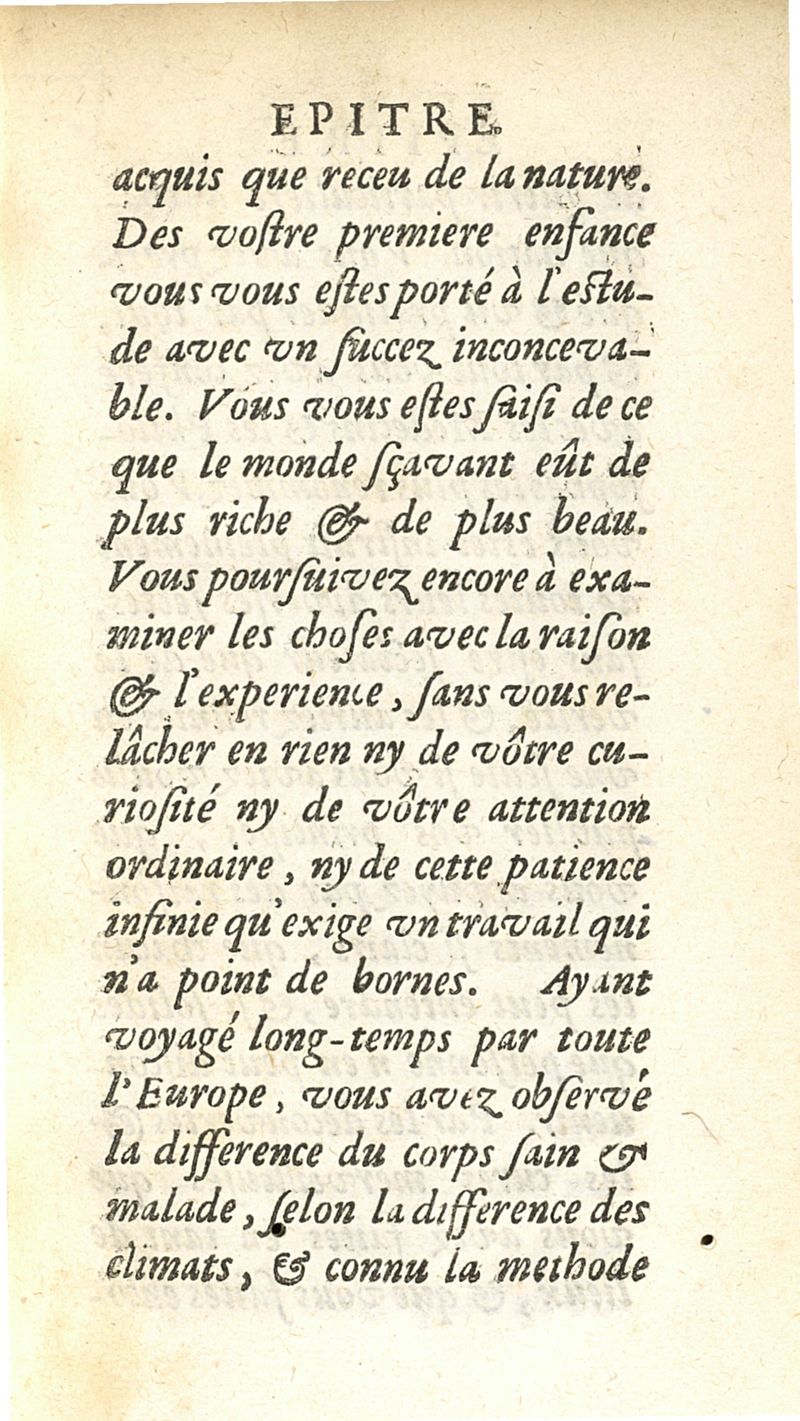 EPITRE.
acquis que receu de la nature.
Des voſtre premiere enfance
vous vous eſtes porté à l'eſtu-
de avec vn ſuccez inconceva-
ble. Vous vous eſtes ſaiſi de ce
que le monde ſçavant eût de
plus riche & de plus beau.
Vous pourſuivez encore à exa-
miner les choſes avec la raiſon
& l'experience, ſans vous re-
lâcher en rien ny de vôtre cu-
rioſité ny de vôtre attention
ordinaire, ny de cette patience
infinie qu'exige vn travail qui
n'a point de bornes. Ayant
voyagé long-temps par toute
l'Europe, vous avez obſervé
la difference du corps ſain &
malade, ſelon la difference des
climats, & connu la methode